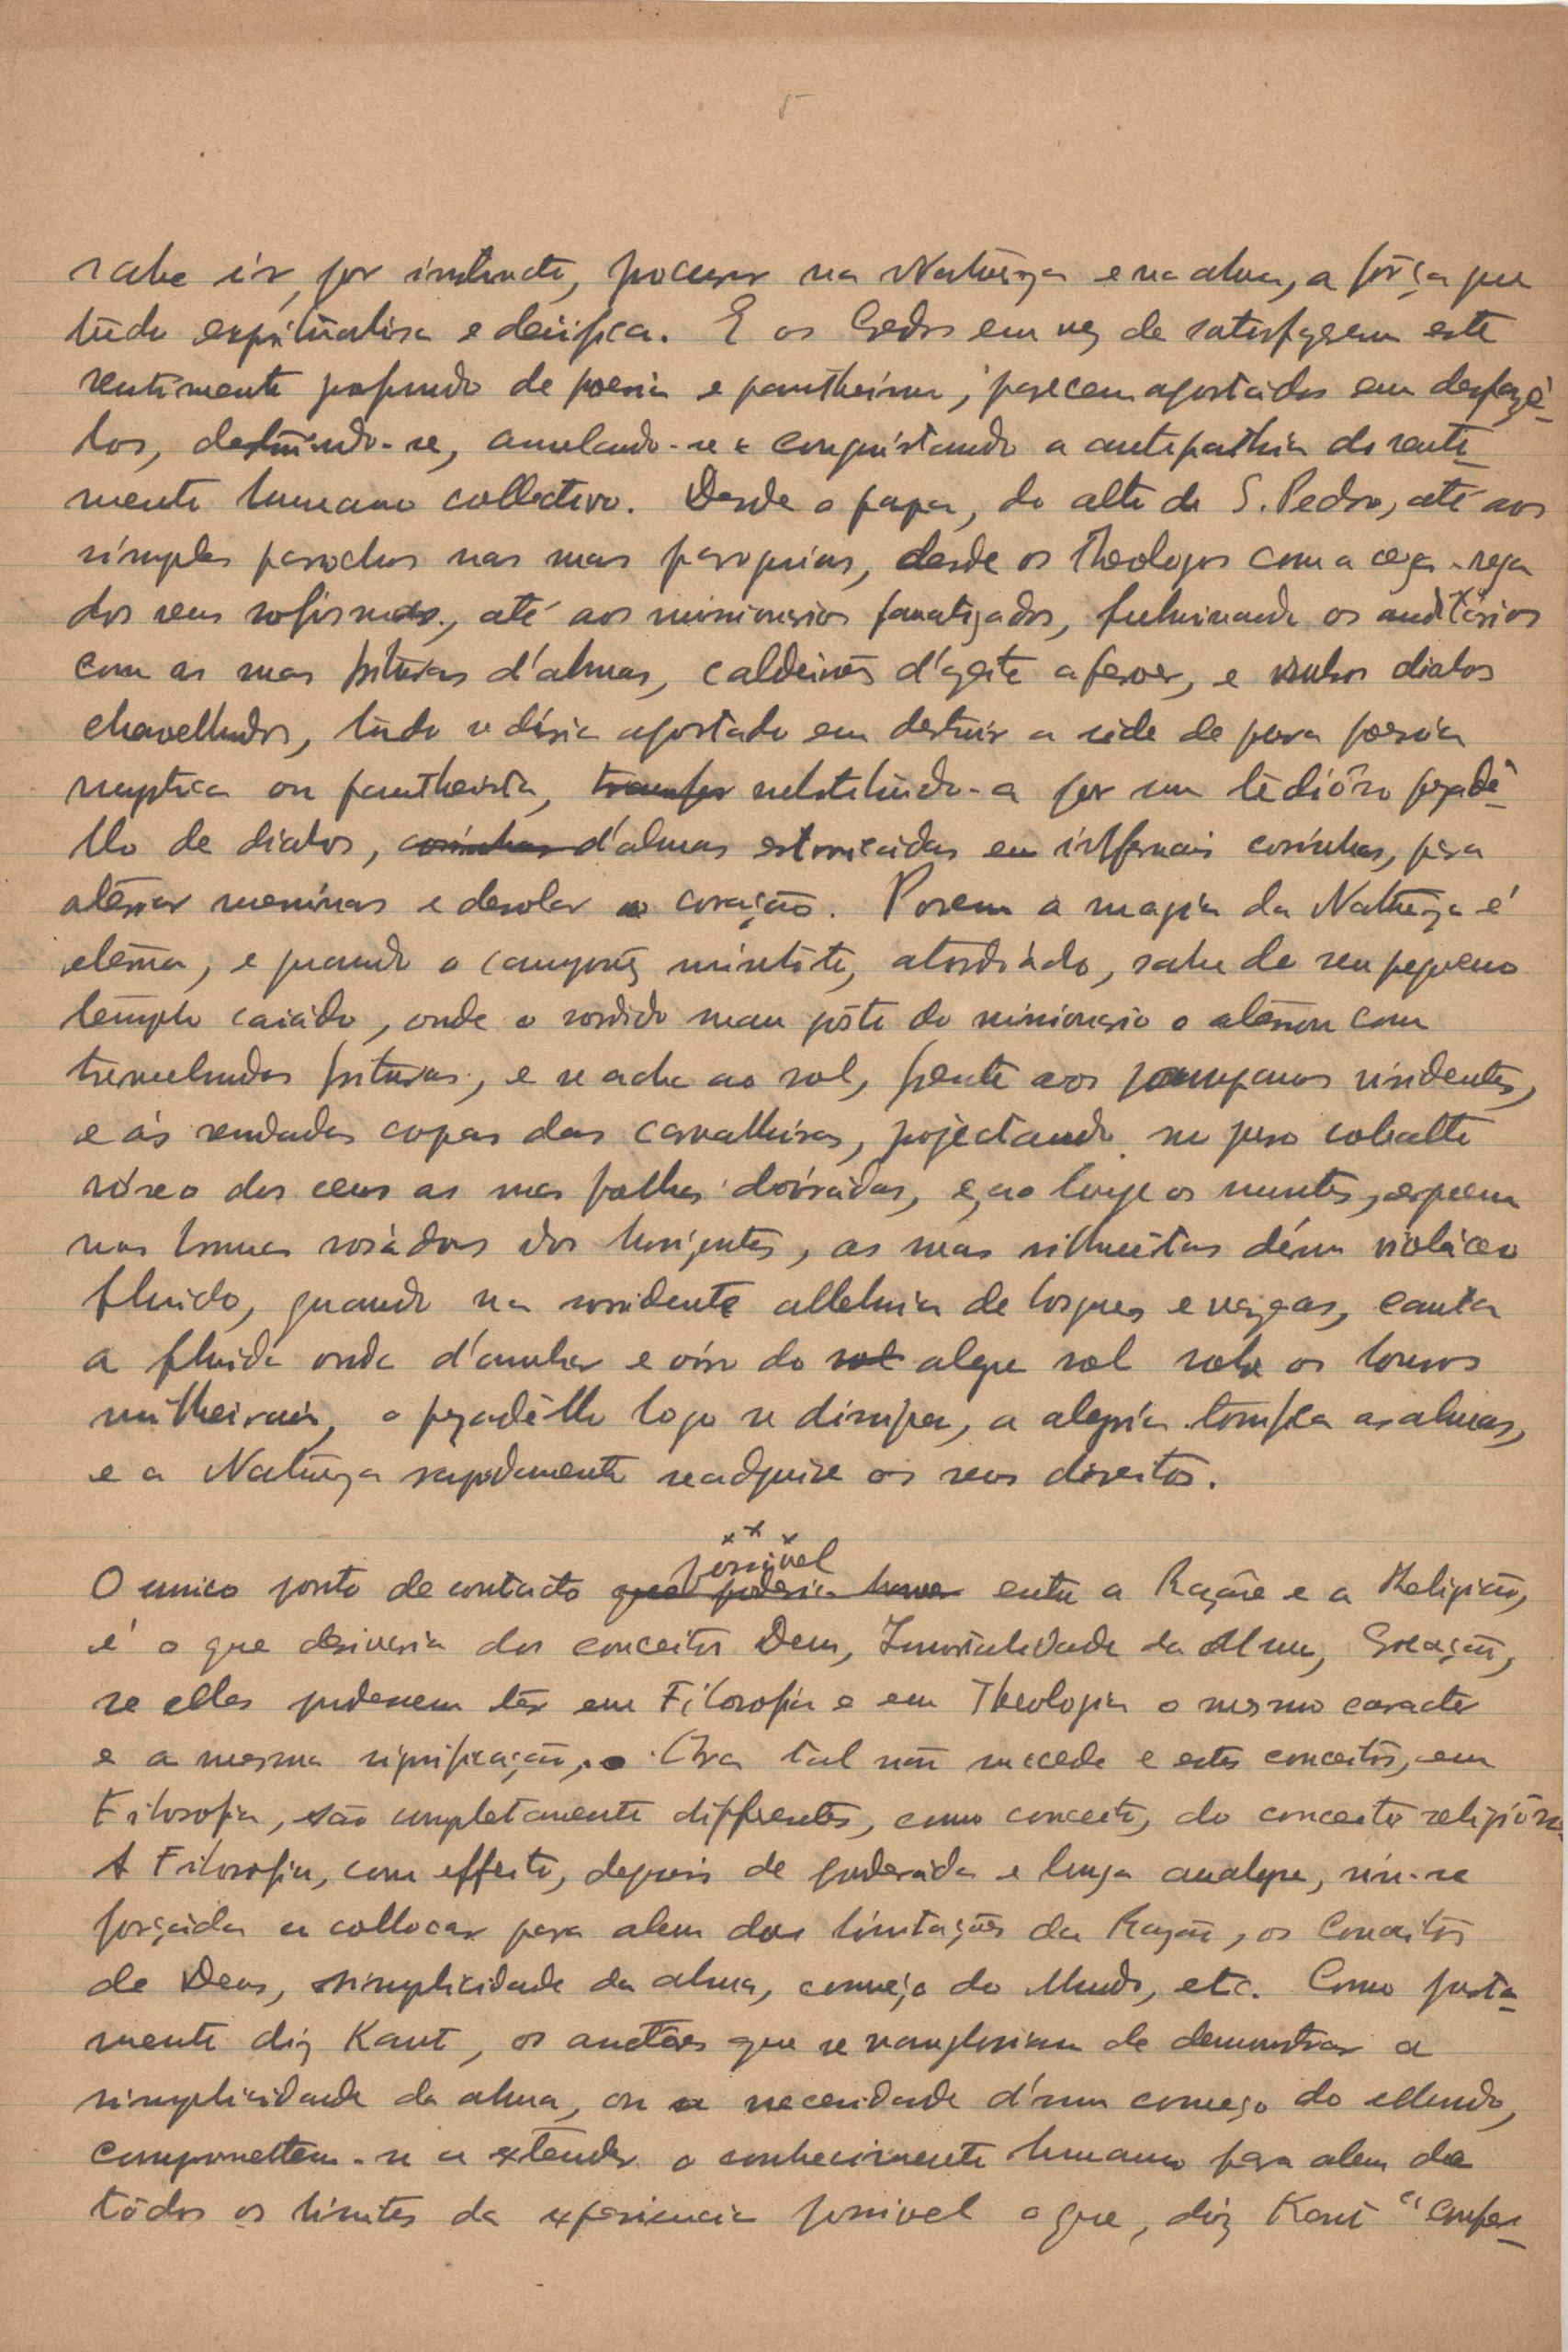 5
sabe ir, por instincto, procurar na Natureza e na alma, a fôrça que
tudo espiritualisa e deiifica. E os Credos em vez de satisfazerem este
sentimento profundo de poesia e pantheismo, parecem apostados em desfazê-
los, destruindo-se, anulando-se e conquistando a antipathia do senti-
mento humano collectivo. Desde o papa, do alto de S. Pedro, até aos
simples parochos nas suas paroquias, desde os Theologos com a cega-rega
dos seus sofismas, até aos missionarios fanatizados, fulminando os auditórios
com as suas frituras d'almas, caldeirões d'azeite a ferver, e rubros diabos
chavelhudos, tudo se diria apostado em destruir a sêde de pura poesia
mystica ou pantheista, transfor substituindo-a por um tediôso pezadê-
llo de diabos, cosinhas d'almas estorricadas em infernais cosinhas, para
aterrar meninos e desolar o coração. Porem a magia da Natureza é
eterna, e quando o camponez minhôto, atordoado, sahe do seu pequeno
templo caiado, onde o sordido mau gôsto do missionario o aterrou com
tremebundas frituras, e se acha ao sol, frente aos pampanos viridentes,
e ás rendadas copas das carvalheiras, projectando no puro cobalto
róseo dos ceus as suas folhas doiradas, e, ao longe os montes, erguem
nas brumas rosádas dos horizontes, as suas silhuêtas d'um violáceo
fluido, quando na sorridente alleluia de bosques e veigas, canta
a fluida onda d'ambar e oiro do sol alegre sol sobre os louros
milheirais, o pezadêllo logo se dissipa, a alegria tonifica as almas,
e a Natureza rapidamente readquire os seus direitos.
x x x
possivel
O unico ponto de contacto que poderia haver entre a Razão e a Religião,
é o que derivaria dos conceitos Deus, Immortalidade da Alma, Creação,
se elles pudessem têr em Filosofia e em Theologia o mesmo caracter
e a mesma significação. Ora tal não succede e estes conceitos, em
Filosofia, são completamente differentes, como conceito, do conceito religiôso
A Filosofia, com effeito, depois de ponderada e longa analyse, viu-se
forçada a collocar para alem das limitações da Razão, os Conceitos
de Deus, simplicidade da alma, começo do Mundo, etc. Como justa-
mente diz Kant, os auctôres que se vangloriam de demonstrar a
simplicidade da alma, ou a necessidade d'um começo do Mundo,
compromettem-se a extender o conhecimento humano para alem de
tôdos os limites da experiencia possivel o que, diz Kant "confes-